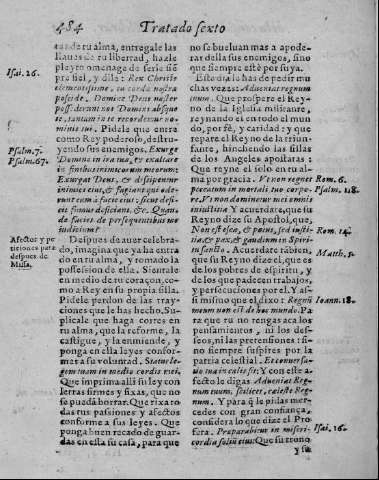 484 Tratado sexto
tas de tu alma, entregale las
llaues de tu libertad, hazle
pleyto omenage de serle siẽ-
pre fiel, y dile: Rex Christe
clementissime, tu corda nostra
posside, Domine Deus noster
possederunt nos Domini absque
te, tantum in te recordemur no-
minis tui. Pidele que entre
como Rey poderoso, destru-
yendo sus enemigos. Exurge
Domine in ira tua, & exaltare
in finibus inimicorum meorum:
Exurgat Deus, & dissipentur
inimici eius, & fugiant qui ode-
runt eum à facie eius: sicut defi-
cit fumus deficiant, &c. Quan-
do facies de persequentibus me
iudicium?
Despues de auer celebra-
do, imagina que ya ha entra-
do en tu alma, y tomado la
possession de ella. Sientale
en medio de tu coraçon, co-
mo à Rey en su propia silla.
Pidele perdon de las tray-
ciones que le has hecho. Su-
plicale que haga cortes en
tu alma, que la reforme, la
castigue, y la enmiende, y
ponga en ella leyes confor-
mes a su voluntad.
legem tuam in medio cordis mei.
Que imprima alli su ley con
letras firmes y fixas, que no
se pueda borrar. Que rixa to-
das tus passiones y afectos
conforme a sus leyes. Que
ponga buen recado de guar-
das en esta su casa, para que
Isai. 26.
Psalm. 7.
Psalm. 67.
Afectos y pe
ticiones para
despues de
Missa.
no se bueluan mas a apode-
rar della sus enemigos, sino
que siempre estè por suya.
Este dia le has de pedir mu
chas vezes: Adueniat regnum
tuum. Que prospere el Rey-
no de la Iglesia militante,
reynando el en todo el mun
do, por fè, y caridad: y que
repare el Reyno de la triun-
fante, hinchendo las sillas
de los Angeles apostatas:
Que reyne èl solo en tu al-
ma por gracia. Vt non regnet
peccatum in mortali tuo corpo-
re, Vt non dominetur mei omnis
iniustitia Y acuerdate, que su
Reyno dize su Apostol, que,
Non est esca, & potus, sed iusti-
tia, & pax, & gaudium in Spiri-
tu sancto. Acuerdate tãbien
que su Reyno dize el, que es
de los pobres de espiritu, y
de los que padecen trabajos,
y persecuciones por el. Y as-
si mismo que el dixo: Regnũ
meum non est de hoc mundo. Pa
ra que tu no tengas aca los
pensamientos, ni los des-
seos, ni las pretensiones: si-
no siempre suspires por la
patria celestial. Et conuersa-
tio tua in cælis sit: Y con este a-
fecto le digas Adueniat Reg-
num tuum, scilicet, cæleste Reg-
num. Y para q̃ le pidas mer-
cedes con gran confiança,
considera lo que dize el Pro
feta. Præparabitur in miseri-
cordia solium eius: Que su trono
y su
Rom. 6.
Psalm. 118.
Rom. 14.
Matth. 5.
Ioann. 18.
Isai. 16.